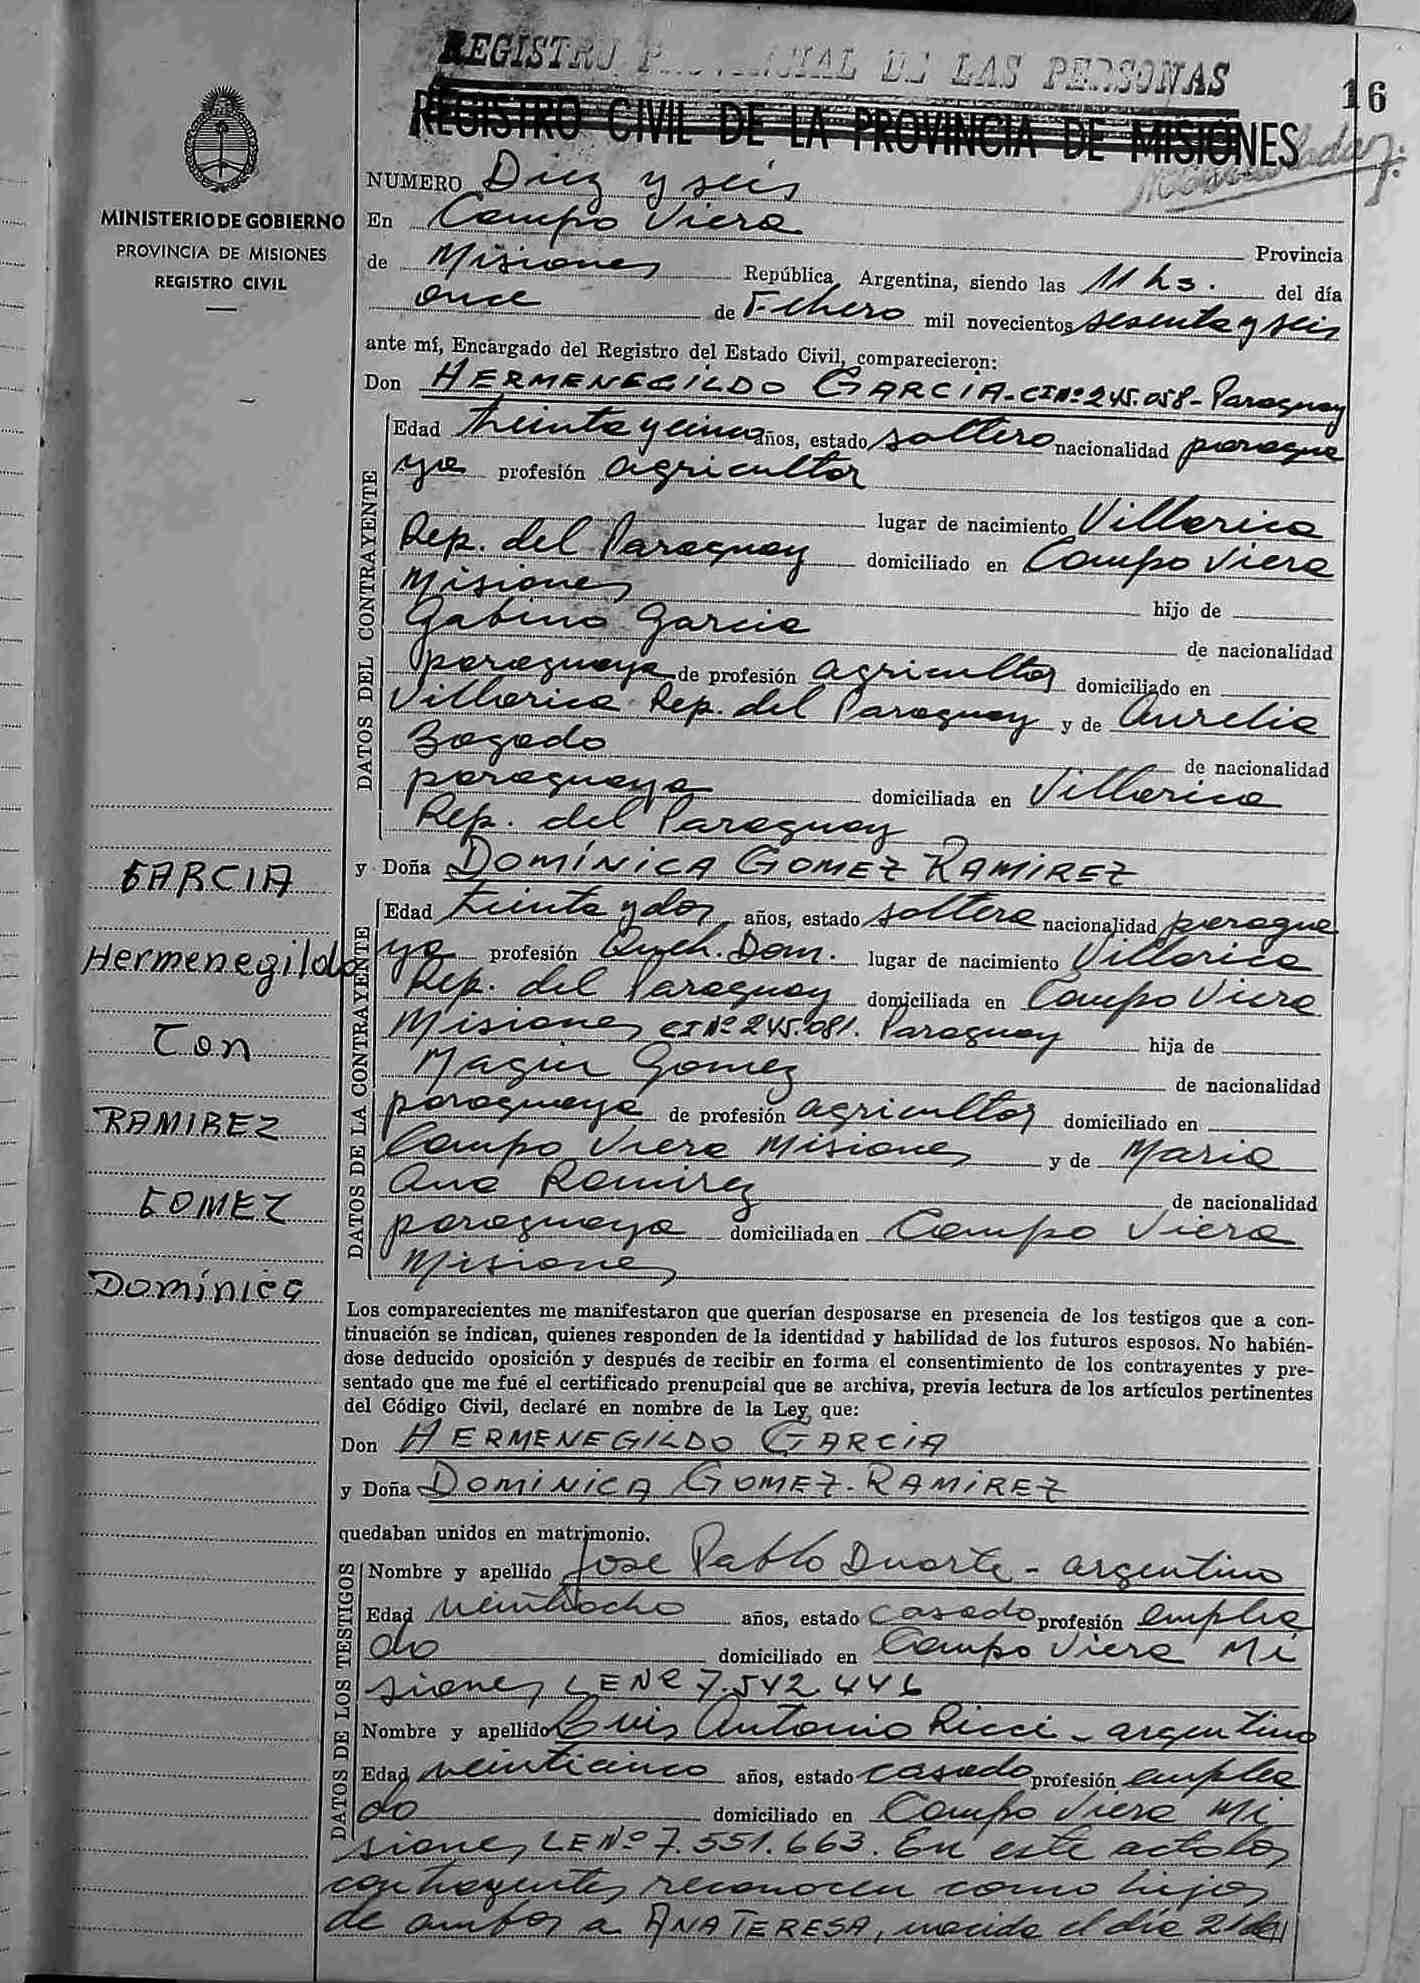 REGISTRO PROVINCIAL DE LAS PERSONAS
16
REGISTRO CIVIL DE LA PROVINCIA DE MISIONES
MINISTERIO DE GOBIERNO
PROVINCIA DE MISIONES
REGISTRO CIVIL
NUMERO Diez y seis
En Campo Viera Provincia
de Misiones República Argentina, siendo las 11 hs. del día
once de Febrero mil novecientos sesenta y seis
ante mí, Encargado del Registro del Estado Civil, comparecieron:
Don HERMENEGILDO GARCIA - CI Nº 245.058 - Paraguay
DATOS DEL CONTRAYENTE
Edad treinta y cinco años, estado soltero nacionalidad paragua
ya profesión agricultor
lugar de nacimiento Villarica
Rep. del Paraguay domiciliado en Campo Viera
Misiones hijo de
Gabino Garcia de nacionalidad
paraguaya de profesión agricultor domiciliado en
Villarica Rep. del Paraguay y de Aurelia
Bogado de nacionalidad
paraguaya domiciliada en Villarica
Rep. del Paraguay
y Doña DOMÍNICA GOMEZ RAMIREZ
DATOS DE LA CONTRAYENTE
Edad treinta y dos años, estado soltera nacionalidad paragua
ya profesión Queh. Dom. lugar de nacimiento Villarica
Rep. del Paraguay domiciliada en Campo Viera
Misiones CI Nº 245.081. Paraguay hija de
Magin Gomez de nacionalidad
paraguaya de profesión agricultor domiciliado en
Campo Viera Misiones y de Maria
Ana Ramirez de nacionalidad
paraguaya domiciliada en Campo Viera
Misiones
GARCIA
Hermenegildo
Con
RAMIREZ
GOMEZ
Domínica
Los comparecientes me manifestaron que querían desposarse en presencia de los testigos que a con-
tinuación se indican, quienes responden de la identidad y habilidad de los futuros esposos. No habién-
dose deducido oposición y después de recibir en forma el consentimiento de los contrayentes y pre-
sentado que me fué el certificado prenupcial que se archiva, previa lectura de los artículos pertinentes
del Código Civil, declaré en nombre de la Ley, que:
Don HERMENEGILDO GARCIA
y Doña DOMINICA GOMEZ - RAMIREZ
quedaban unidos en matrimonio.
DATOS DE LOS TESTIGOS
Nombre y apellido Jose Pablo Duarte - argentino
Edad veintiocho años, estado casado profesión emplea
do domiciliado en Campo Viera Mi
siones LE Nº 7.542.446
Nombre y apellido Luis Antonio Ricci - argentino
Edad veinticinco años, estado casado profesión emplea
do domiciliado en Campo Viera Mi
siones LE Nº 7.551.663. En este acto los
contrayentes reconocen como hijos
de ambos a ANA TERESA, nacida el día 21 de